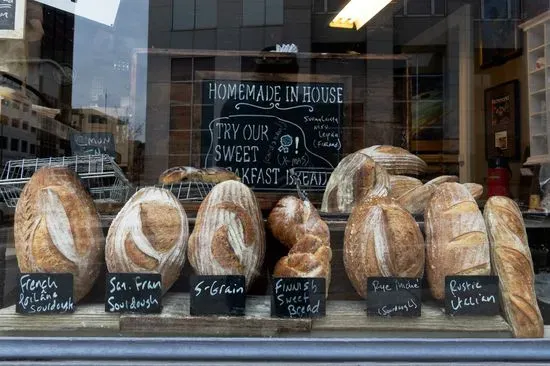 HOMEMADE IN HOUSE
TRY OUR
SWEET
BREAKFAST BREAD
(X-MAS)
(Finland)
French
Sourdough
San. Fran
Sourdough
5-Grain
FINNISH
Sweet
Bread
Rye
(Sourdough)
Rustic
Italian